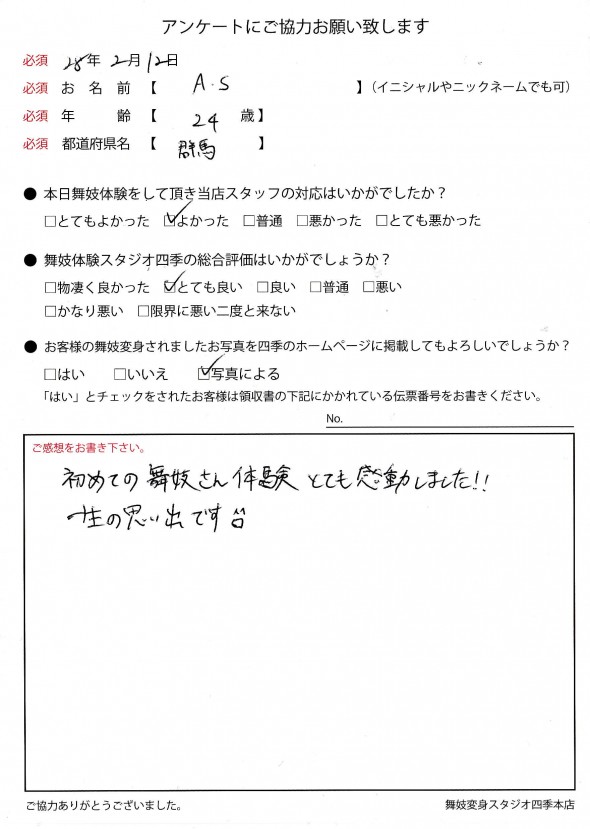 アンケートにご協力お願い致します
必須 28年2月12日
必須 お名前【 A.S 】（イニシャルやニックネームでも可）
必須 年齢【 24 歳】
必須 都道府県名【 群馬 】
● 本日舞妓体験をして頂き当店スタッフの対応はいかがでしたか？
□とてもよかった ☑よかった □普通 □悪かった □とても悪かった
● 舞妓体験スタジオ四季の総合評価はいかがでしょうか？
□物凄く良かった ☑とても良い □良い □普通 □悪い
□かなり悪い □限界に悪い二度と来ない
● お客様の舞妓変身されましたお写真を四季のホームページに掲載してもよろしいでしょうか？
□はい □いいえ ☑写真による
「はい」とチェックをされたお客様は領収書の下記にかかれている伝票番号をお書きください。
No.
ご感想をお書き下さい。
初めての舞妓さん体験とても感動しました!!
一生の思い出です
ご協力ありがとうございました。
舞妓変身スタジオ四季本店